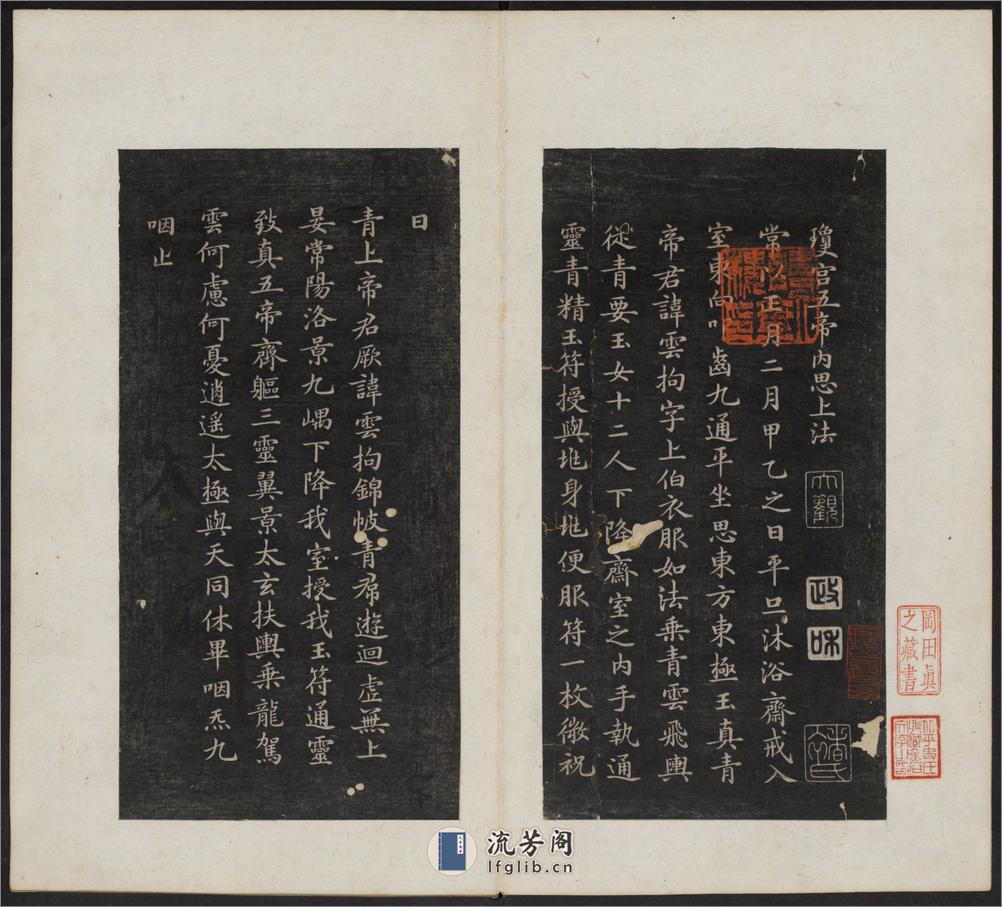 瓊宫五帝内思上法
常以正月二月甲乙之日平旦沐浴齋戒入
室東向叩齒九通平坐思東方東極玉真青
帝君諱雲拘字上伯衣服如法乗青雲飛輿
從青要玉女十二人下降齋室之内手執通
靈青精玉符授與兆身兆便服符一枚微祝
曰
青上帝君厥諱雲拘錦帔青帬遊迴虚無上
晏常陽洛景九嵎下降我室授我玉符通靈
致真五帝齊軀三靈翼景太玄扶輿乗龍駕
雲何慮何憂逍遥太極與天同休畢咽炁九
咽止
大觀
政和
岡田真
之藏書
流芳阁
lfglib.cn